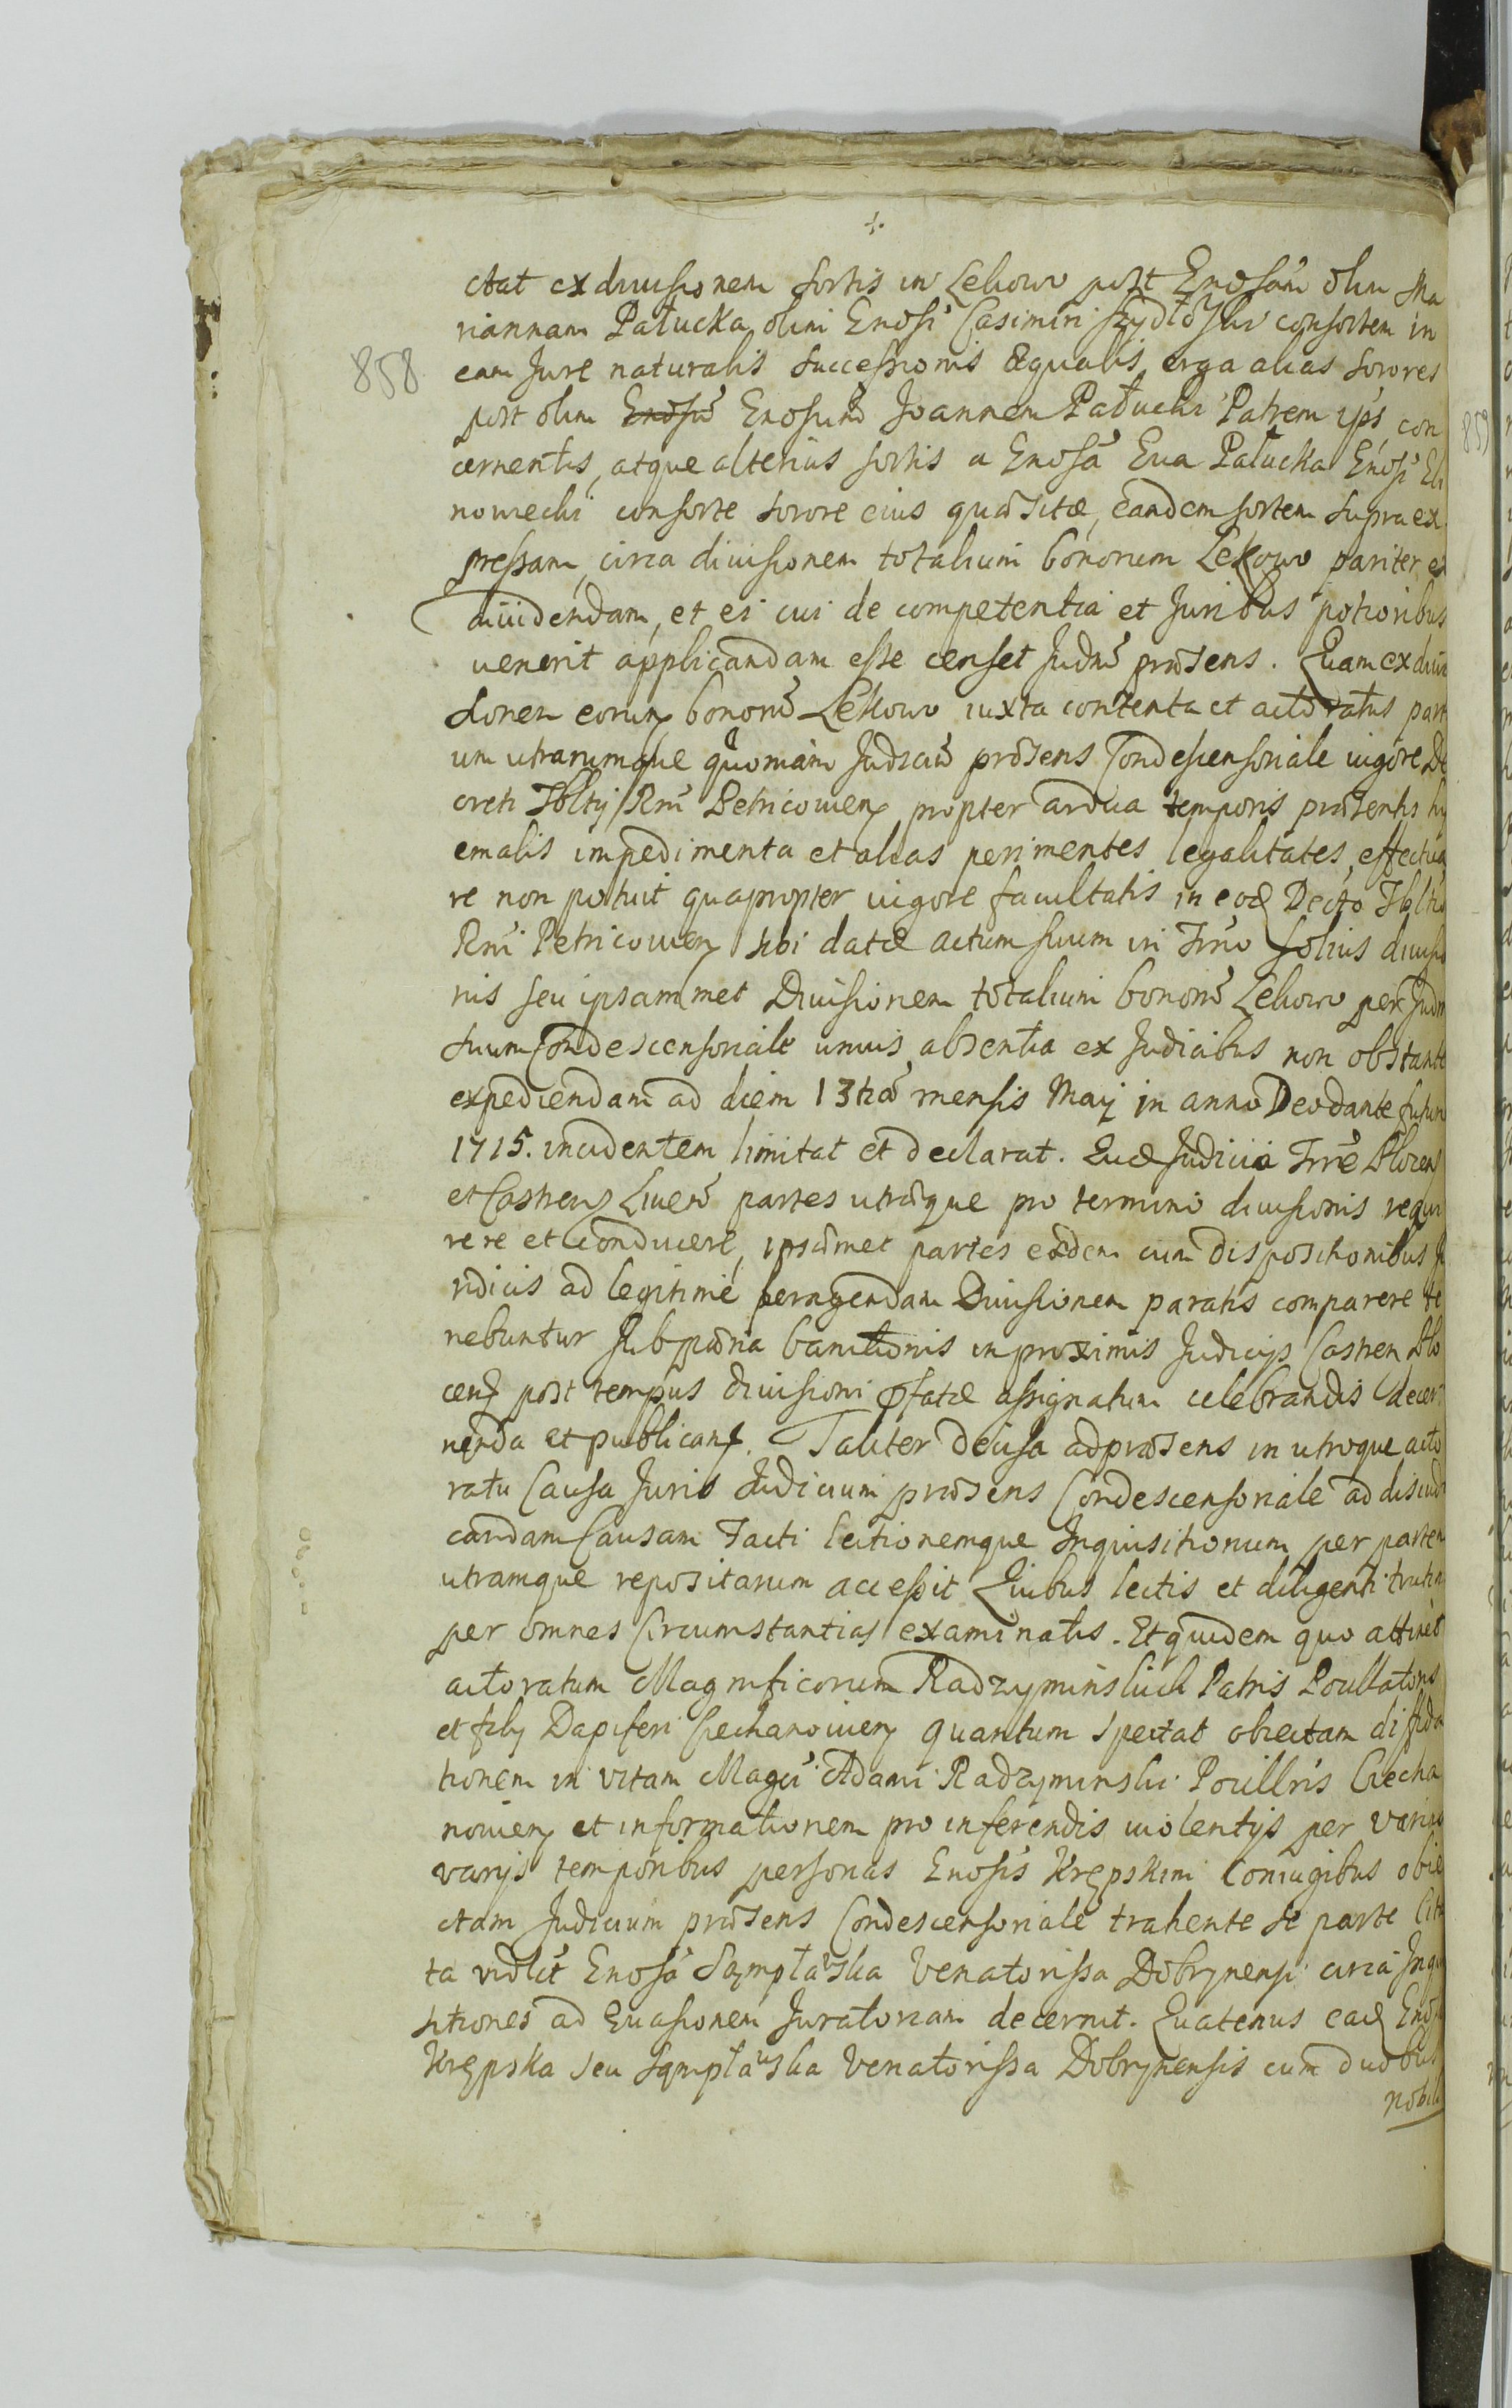 ⁘
ctat exdiuisionem sortis in Lekowo post Gnosam olim Ma
riannam Pałucka olim Gnosi Casimiri Szydłowski consortem in
858 eam Jure naturalis successionis æqualis erga alias sorores
post olim Gnosum Joannem Pałucki Patrem ips con
cernentis, atque alterius sortis a Gnosa Eua Pałucka Gnosi
nowiecki consorte sorore eius quæsitæ, eandem sortem supra ex
pressam, circa diuisionem totalium bonorum Lekowo pariter ex
diuidendam, et ei cui de competentia et Juribus potioribus
uenerit applicandam esse censet Judm præsens. Quam exdiui
sionem eorum bonorum Lekowo iuxta contenta et actoratus parti
um utrarumque quoniam Judicium præsens Condescensoriale uigore De
creti Tbltij Rni Petricouien propter ardua temporis præsentis hy
emalis impedimenta et alias perimentes legalitates, effectua
re non potuit quapropter uigore facultatis in eod Decto Tbltis
Rni Petricouien sibi datæ actum suum in Trno solius diuisio
nis seu ipsammet Diuisionem totalium bonorum Lekowo per Judm
suum Condescensoriale unius absentia ex Judicibus non obstante
expediendam ad diem 13tia mensis Maij in anno Deo dante futuro
1715. incidentem limitat et declarat. Quæ Judicia Trre Plocens
et Castren partes utræque pro termino diuisionis requi
rere et conducere, ipsæmet partes eædem cum dispositionibus Ju
ridicis ad legitime peragendam Diuisionem paratis comparere te
nebuntur sub pæna banitionis in proximis Judicijs Castren Plo
cens post tempus diuisioni præfatæ assignatum celebrandis decer
nenda et publican. Taliter decisa ad præsens in utroque acto
ratu Causa Juris Judicium præsens Condescensoriale ad disiudi
candam Causam Facti lectionemque Inquisitionum per partem
utramque repositarum accessit Quibus lectis et diligenti trutina
per omnes Circumstantias examinatis. Et quidem quo attinet
actoratum Magnificorum Radzyminskich Patris Pocillatoris
et filij Dapiferi Ciechanouien quantum spectat obiectam diffida
tionem in vitam Magci Adami Radzyminski Pocillris Ciecha
nouien et informationem pro inferendis uiolentijs per varias
varijs temporibus personas Gnosis Krępskim Coniugibus obie
ctam Judicium præsens Condescensoriale trahente se parte Cita
ta vidlct Gnosa Sąmpławska Venatorissa Dobrynensi circa Inqui
sitiones ad Euasionem Juratoriam decernit. Quatenus ead Gnosa
Krępska seu Sąmpławska Venatorissa Dobrynensis cum duobus
nobili
859